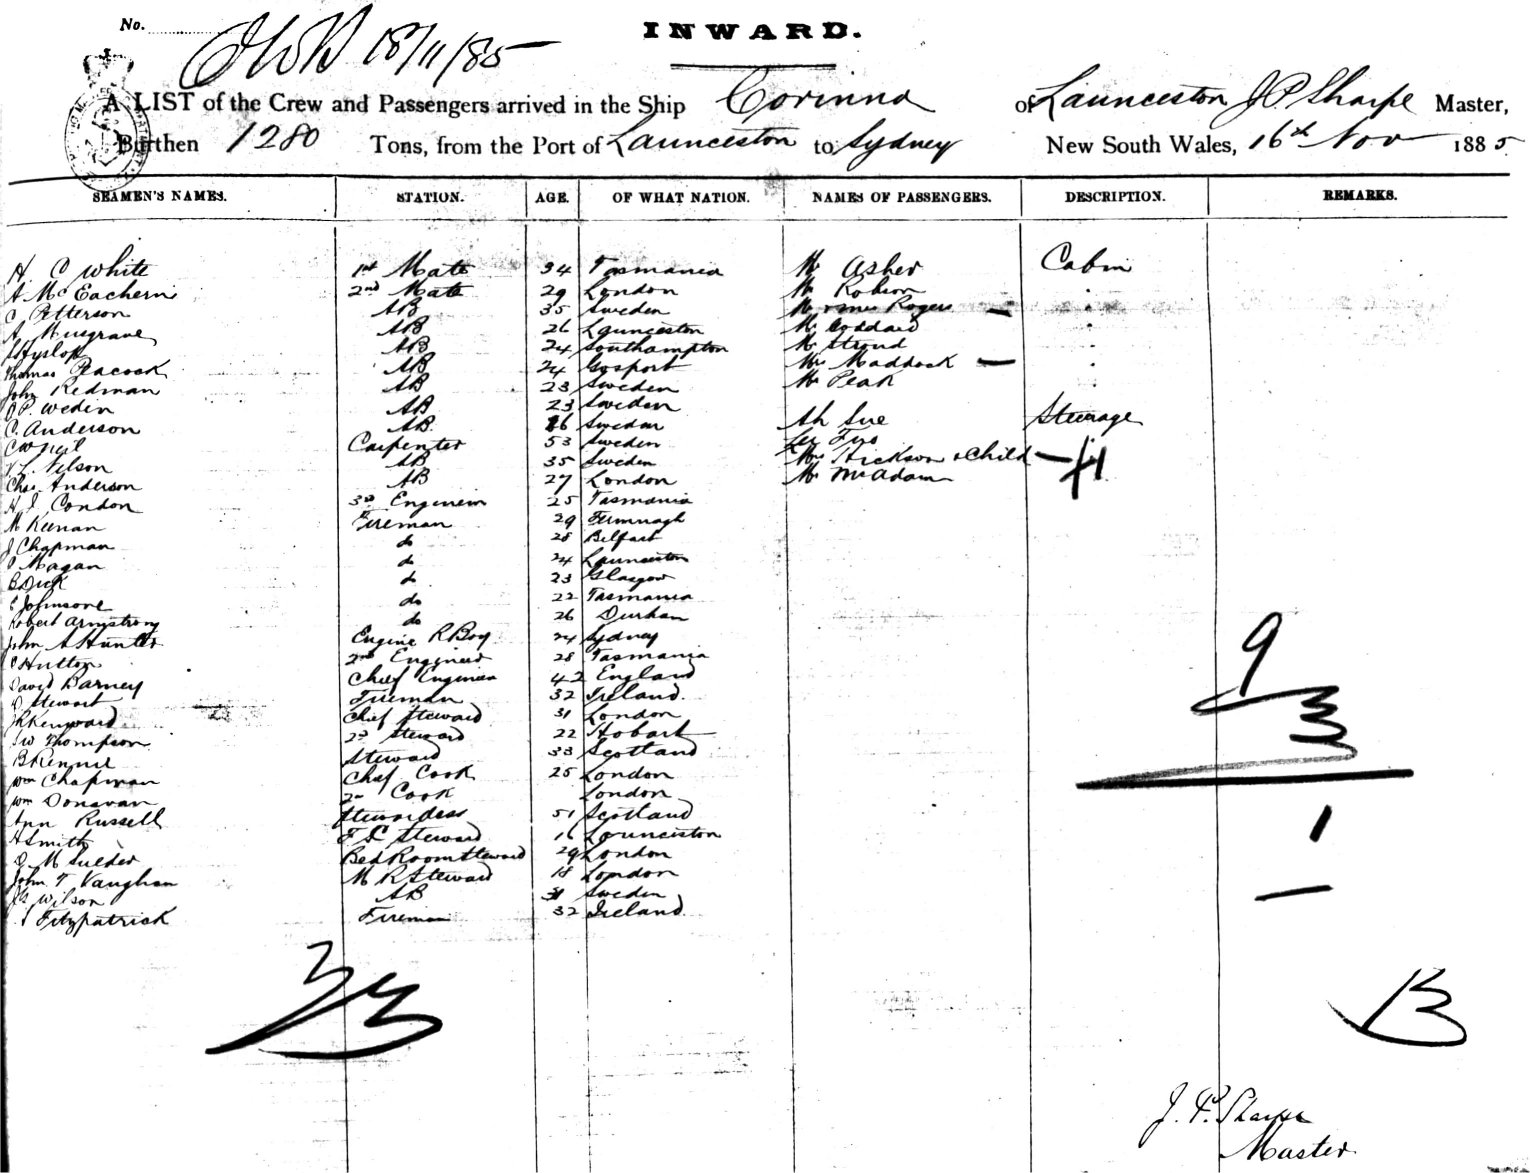 No.
18/11/85
INWARD.
A LIST of the Crew and Passengers arrived in the Ship Corinna of Launceston J P Sharpe Master,
Burthen 1280 Tons, from the Port of Launceston to Sydney New South Wales, 16th Nov 1885
SEAMEN'S NAMES. STATION. AGE. OF WHAT NATION. NAMES OF PASSENGERS. DESCRIPTION. REMARKS.
H. C White 1st Mate 34 Tasmania Mr Asher Cabin
A McEachern 2nd Mate 29 London Mr Robson "
C Petterson AB 35 Sweden Mr & Mrs Rogers — "
A Musgrave AB 26 Launceston Mr Goddard "
Hyslop AB 24 Southampton Mr Stroud "
Thomas Peacock AB 24 Gosport Mrs Maddock — "
John Redman AB 23 Sweden Mr Peak
J P. Weden AB 23 Sweden
C. Anderson AB 26 Sweden Ah Sue Steerage
Carpenter 53 Sweden
V. L. Nilson AB 35 Sweden Mrs Hickson & Child
Chas Anderson AB 27 London Mr McAdam
H. J. Condon 3rd Engineer 25 Tasmania
M Keenan Fireman 29 Fermnagh
J Chapman do 28 Belfast
P Magan do 24 Launceston
B Dick do 23 Glasgow
E Johnsone do 22 Tasmania
Robert Armstrong do 26 Durham
John A Hunter Engine R Boy 24 Sydney
C Hutton 2nd Engineer 28 Tasmania
David Barney Chief Engineer 42 England
D Stewart Fireman 32 Ireland
Kenward Chief Steward 31 London
W Thompson 2nd Steward 22 Hobart
B Rennie Steward 33 Scotland
Wm Chapman Chef Cook 25 London
Wm Donavan 2nd Cook London
Ann Russell Stewardess 51 Scotland
H Smith F C Steward 16 Launceston
D M Suelder Bed Room Steward 29 London
John T Vaughan M R Steward 18 London
Wilson AB 31 Sweden
Fitzpatrick Fireman 32 Ireland
9
3
1
33
13
J. P. Sharpe
Master